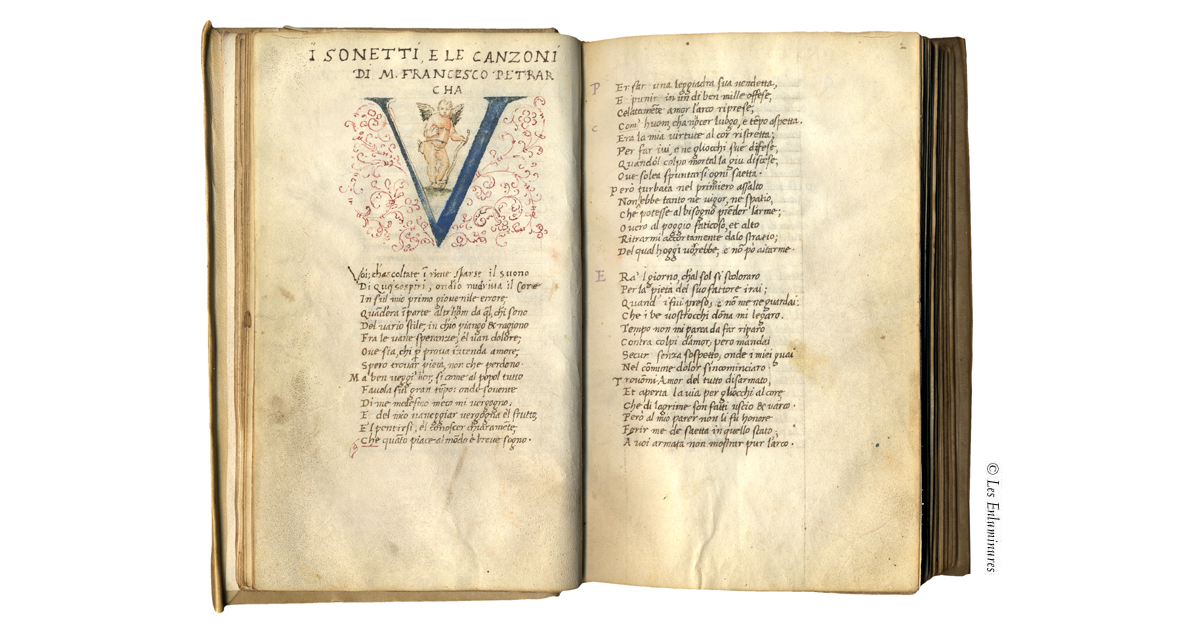 I SONETTI, E LE CANZONI
DI M. FRANCESCO PETRAR
CHA
V
Voi, ch'ascoltate ĩ rime sparse il suono
Di quei sospiri, ond'io nudriva il core
In sul mio primo giovenile errore,
Quand'era ĩ parte altr'hom da ql, ch'i sono
Del vario stile, in ch'io piango & ragiono
Fra le vane speranze, e'l van dolore;
Ove sia, chi p prova intenda amore,
Spero trovar pieta, non che perdono.
Ma ben veggi'hor, si come al popol tutto
Favola fui gran tẽpo: onde sovente
Di me medesmo meco mi vergogno,
E del mio vaneggiar vergogna è'l frutto,
E'l pentirsi, e'l conoscer chiaramẽte,
Che quãto piace al mõdo è breve sogno.
2
P Er far una leggiadra sua vendetta,
E punir in un dì ben mille offese,
Celatamẽte amor l'arco riprese;
C Com' huom, cha nocer luogo, e tẽpo aspetta.
Era la mia virtute al cor ristretta;
Per far ivi, e ne gliocchi sue difese,
Quando'l colpo mortal la giu discese,
Ove solea spuntarsi ogni saetta.
Però turbata nel primiero assalto
Non ebbe tanto ne vigor, ne spatio,
Che potesse al bisogno prẽder l'arme;
Overo al poggio faticoso, et alto
Ritrarmi accortamente dalo stratio;
Del qual hoggi vorrebbe, e nõ pò aitarme.
E Ra'l giorno, ch'al sol si scoloraro
Per la pieta del suo fattore i rai;
Quand' i fui preso, e nõ me ne guardai.
Che i be vostr'occhi dõna mi legaro.
Tempo non mi parea da far riparo
Contra colpi d'amor, pero m'andai
Secur senza sospetto, onde i miei guai
Nel cõmune dolor s'incominciaro.
Trovommi Amor del tutto disarmato,
Et aperta la via per gliocchi al core,
Che di lagrime son fatti uscio & varco.
Però al mio parer non li fu honore
Ferir me de saetta in quello stato,
A voi armata non mostrar pur l'arco.
© Les Enluminures